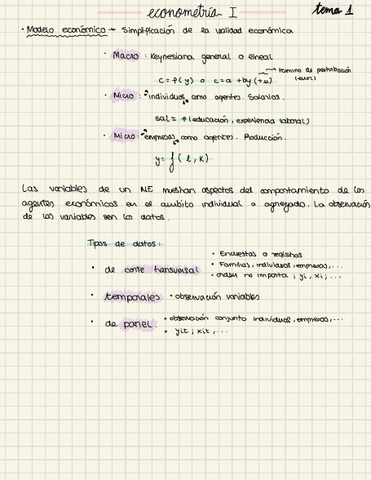 econometría I
tema 1
• Modelo económico → Simplificación de la realidad económica
• Macro: Keynesiana general o lineal
c = f(y) o c = a + by (+u) → término de perturbación (error)
• Micro: "individuos" como agentes. Salarios.
sal = f(educación, experiencia laboral)
• Micro: "empresas" como agentes. Producción.
y = f(l, k)
Las variables de un ME muestran aspectos del comportamiento de los
agentes económicos en el ámbito individual o agregado. La observación
de las variables son los datos.
Tipos de datos:
• de corte transversal
• Encuestas o registros
• Familias, individuos, empresas,...
• orden no importa; yi, xi;...
• temporales • observación variables
• de panel • observación conjunto individuos, empresas,...
• yit; xit,...